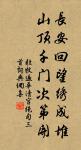 長安回望綉成堆
山頂千門次第開
杜牧過華清宮絕句三
首詞典網